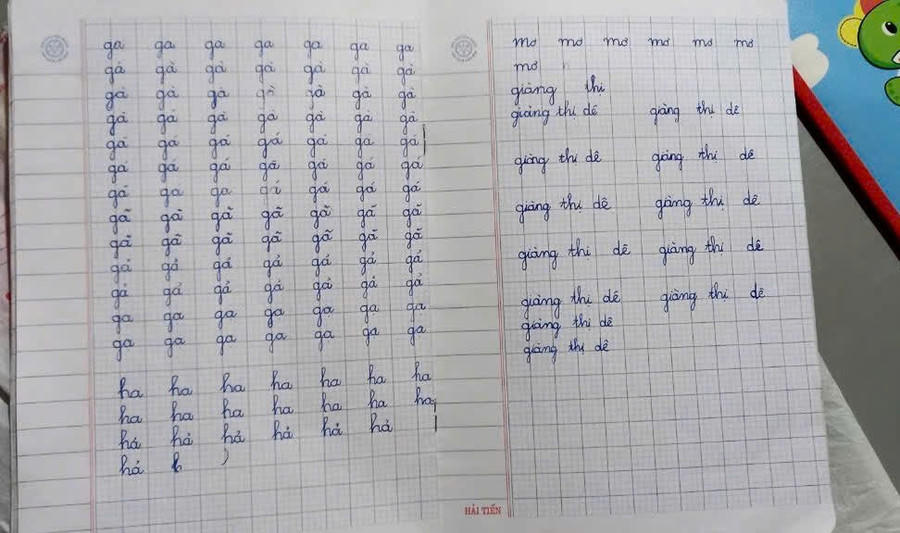 ga ga ga ga ga ga ga
gà gà gà gà gà gà gà
gà gà gà gà gà gà gà
gá gá gá gá gá gá gá
gá gá gá gá gá gá gá
gá gá gá gá gá gá gá
gá ga ga gá gá gá gá
gã gã gã gã gã gã gã
gã gã gã gã gã gã gã
gả gả gả gả gả gả gả
gả gả gả gả gả gả gả
gạ gạ gạ gạ gạ gạ gạ
gạ gạ gạ gạ gạ gạ gạ
ha ha ha ha ha ha ha
ha ha ha ha ha ha ha
hả hả hả hả hả hả
hả
mơ mơ mơ mơ mơ mơ
mơ
giàng thi
giàng thị dê giàng thị dê
giàng thị dê giàng thị dê
giàng thị dê giàng thị dê
giàng thị dê giàng thị dê
giàng thị dê giàng thị dê
giàng thị dê
giàng thị dê
HẢI TIẾN